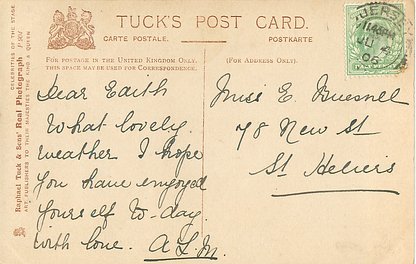 TUCK'S POST CARD.
CARTE POSTALE.
POSTKARTE
FOR POSTAGE IN THE UNITED KINGDOM ONLY,
THIS SPACE MAY BE USED FOR CORRESPONDENCE.
(FOR ADDRESS ONLY).
CELEBRITIES OF THE STAGE
Raphael Tuck & Sons' "Real Photograph"
ART PUBLISHERS TO THEIR MAJESTIES THE KING & QUEEN
Dear Edith
What lovely
weather I hope
you have enjoyed
yourself to-day.
with love. A L M.
Miss E.
78 New St
St Heliers